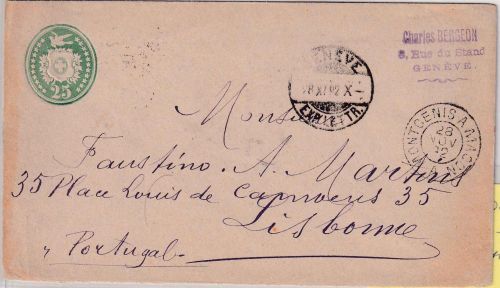 25
GENÈVE
EXP. LETTR.
Charles BERGEON
8, Rue du Stand
GENÈVE.
MONTCENIS A MACON
28
NOV
92
Monsieur
Faustino. A. Martins
35 Place Louis de Camoens 35
Lisbonne
"Portugal"